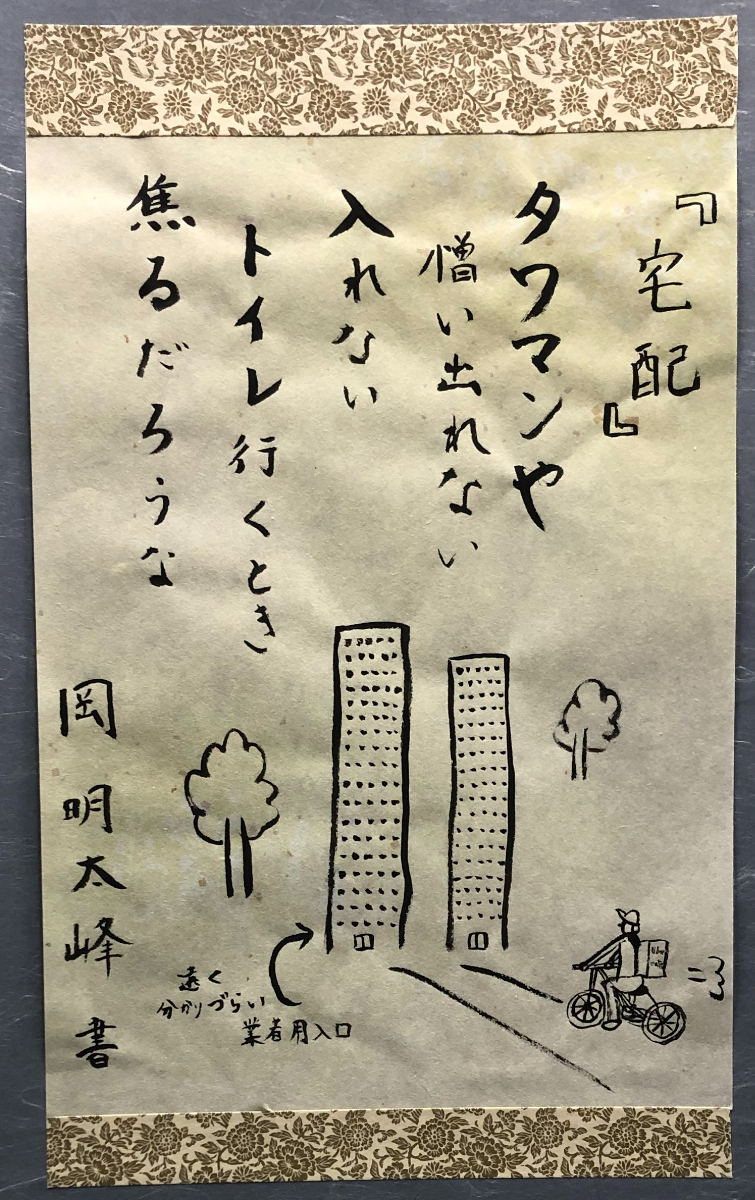 『宅配』
タワマンや
憎い出れない
入れない
トイレ行くとき
焦るだろうな
岡明太峰 書
遠く
分かりづらい
業者用入口